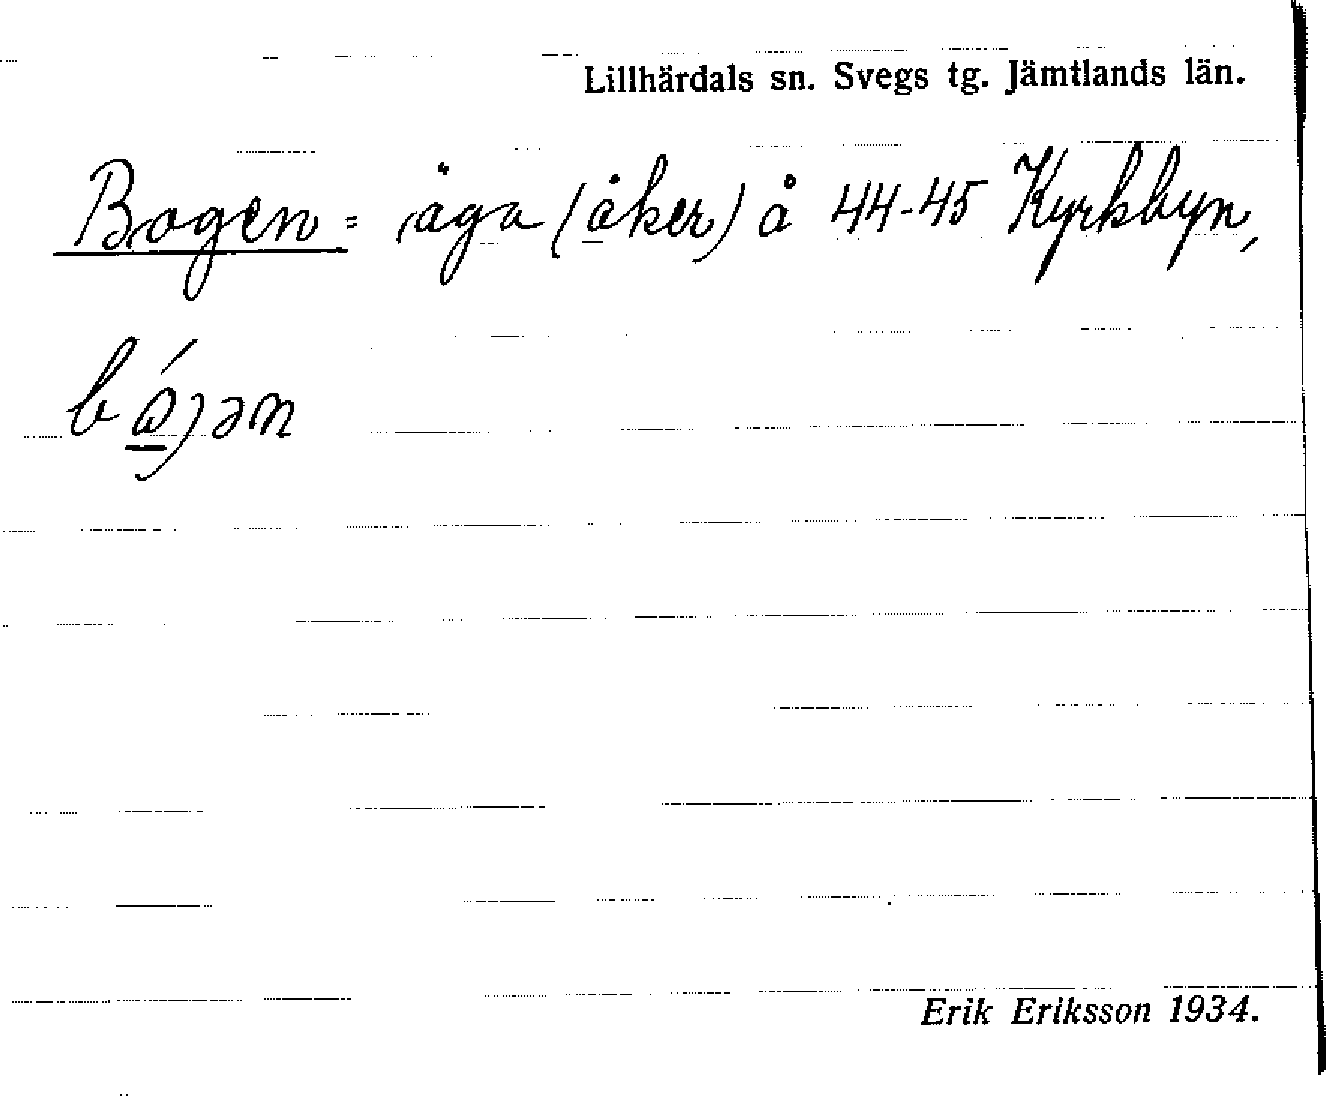 Lillhärdals sn. Svegs tg. Jämtlands län.
Bogen = äga (åker) å 44-45 Kyrkbyn,
Erik Eriksson 1934.